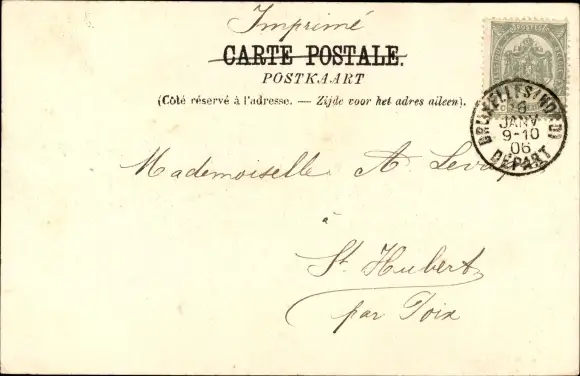 Imprimé
CARTE POSTALE.
POSTKAART
(Côté réservé à l'adresse. — Zijde voor het adres alleen).
BRUXELLES (NORD)
6
JANV
9-10
06
DÉPART
Mademoiselle A.
à
St. Hubert
par Poix